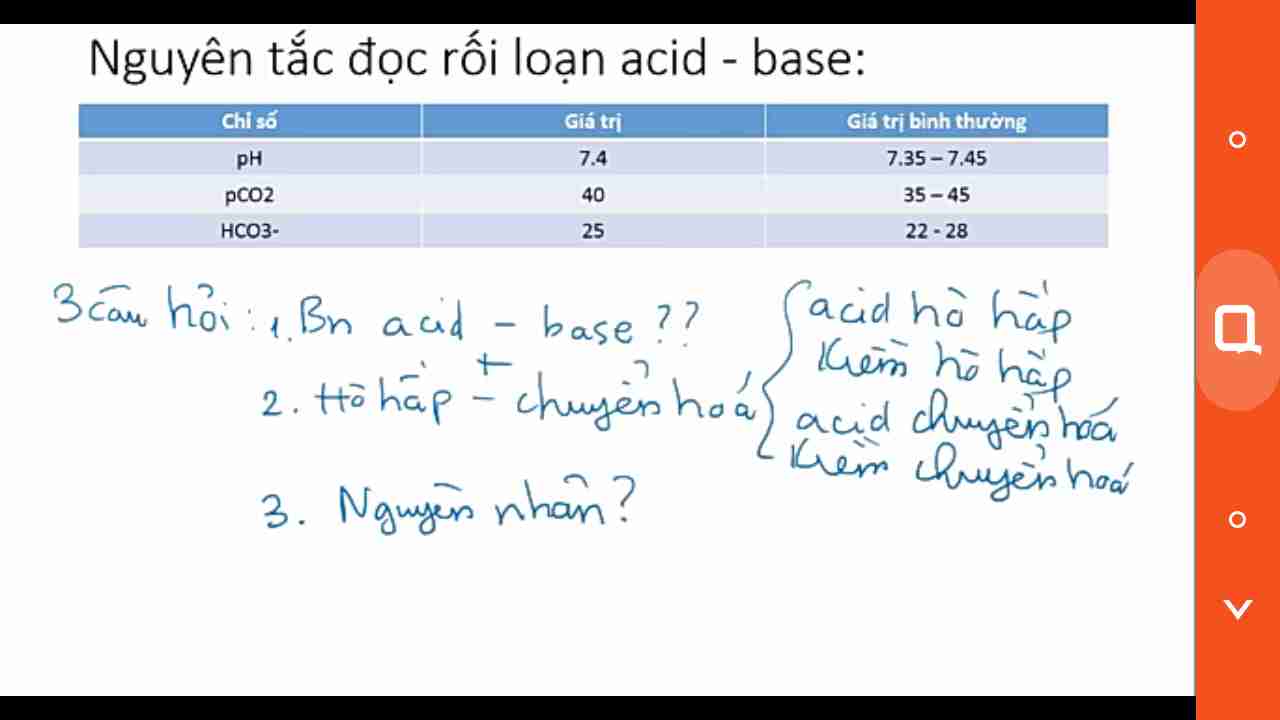 Nguyên tắc đọc rối loạn acid - base:
Chỉ số Giá trị Giá trị bình thường
pH 7.4 7.35 – 7.45
pCO2 40 35 – 45
HCO3- 25 22 - 28
3 câu hỏi: 1. Bn acid - base ??
2. Hô hấp + - chuyển hoá
3. Nguyên nhân?
acid hô hấp
Kiềm hô hấp
acid chuyển hoá
Kiềm chuyển hoá